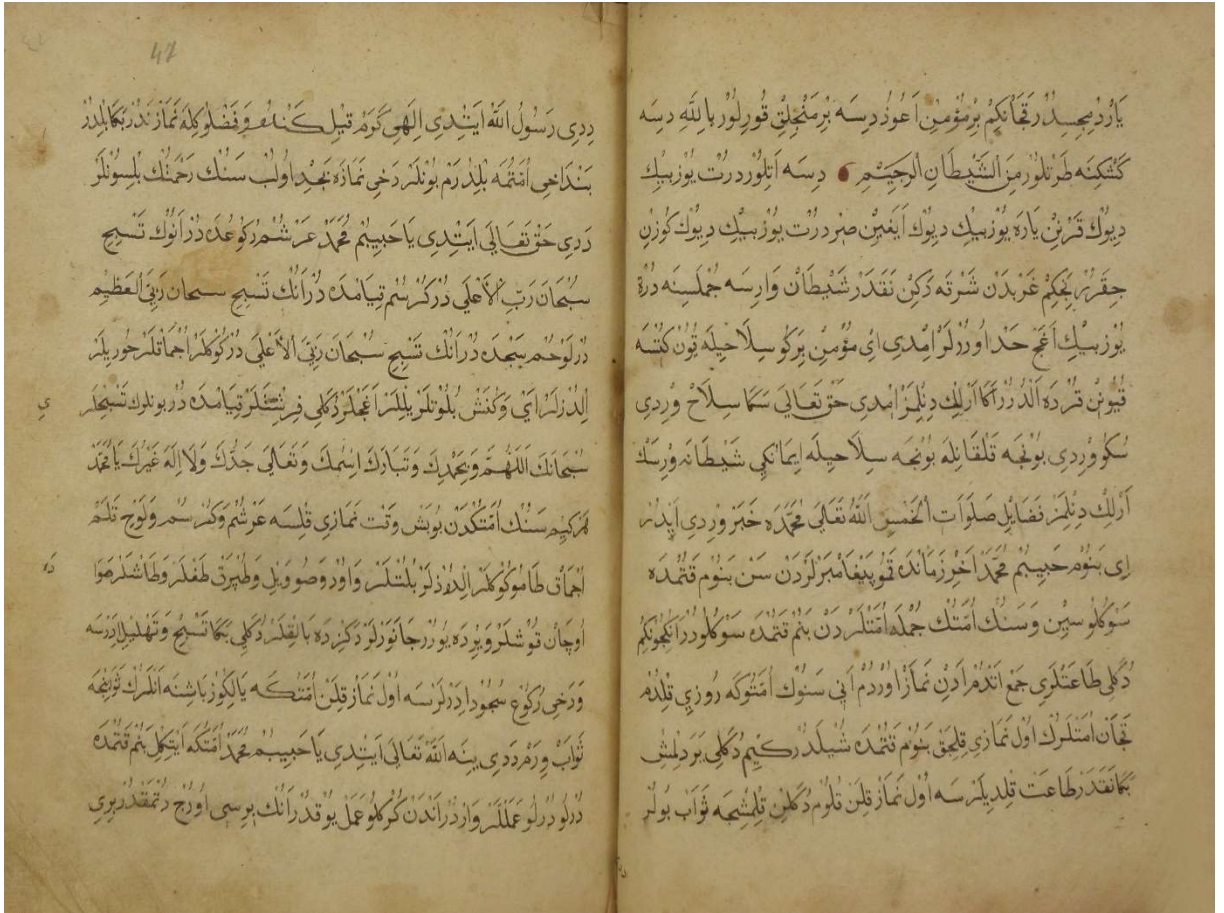 يَارْدُمِجِسِدُرْ قَچَانْكِمْ بِرْمُؤْمِنْ اَعُوذُ دِسَه بَرْمَنْجِلِقْ قُورِلُورْ بِاللّٰهِ دِسَه
كَشْكِنَه طَرْتِلُورْ مِنَ الشَّيْطَانِ الرَّجِيْمِ دِسَه اَتِلُورْ دُرْت يُوزْبِيكْ
دِيوُكْ قَرْنِنْ يَارَه يُوزْبِيكْ دِيوُكْ اَيَغِينْ صِرْ دُرْت يُوزْبِيكْ دِيوُكْ كُوزِنْ
چِقَرِرْ نِجِكِمْ غَرْبدَنْ شَرْقَه دَكِنْ نَقَدَرْ شَيْطَانْ وَارِسَه جُمْلَسِنَه دُرْت
يُوزْبِيكْ اَغَچْ حَدْ اُورُرْلَرْ اِمْدِى اَىْ مُؤْمِنْ بِرْكُو سِلَاحِيلَه قُونْ كُتْسَه
قُيُونِنْ قُرْدَه اَلْدُرُرْ اَكَا اَرْلِكْ دِنِلْمَزْ اِمْدِى حَقْ تَعَالَى سَكَا سِلَاحْ وِرْدِى
سُكُو وِرْدِى بُونْجَه قَلْقَانِلَه بُونْجَه سِلَاحِيلَه اِيمَانِكِى شَيْطَانَه وِرْسَكْ
اَرْلِكْ دِنِلْمَزْ فَضَايِلِ صَلَوَاتِ الْخَمْسِ اَللّٰهُ تَعَالَى مُحَمَّدَه خَبَرْ وِرْدِى اَيْدُرْ
اِى بَنُومْ حَبِيبُمْ مُحَمَّدْ اَخِرْ زَمَانْدَه قَمُو پَيْغَامْبَرْلَرْدَنْ سَنْ بَنُومْ قَتُمْدَه
سَوْكُلُوسِينْ وَسَنُكْ اُمَّتُكْ جُمْلَه اُمَّتْلَرْدَنْ بَنُمْ قَتُمْدَه سَوْكُلُودُرْ اَنُكِچُونْكِمْ
دُكَلِى طَاعَتْلَرِى جَمْعْ اَتْدُمْ اَدِنْ نَمَازْ اُوُرْدُمْ اَنِى سَنُوكْ اُمَّتُوكَه رُوزِى قِلْدُمْ
قَچَانْ اُمَّتْلَرُكْ اُولْ نَمَازِى قِلِجَقْ بَنُومْ قَتُمْدَه شُيْلَدُرْكِيمْ دُكَلِى يَرَدِلْمِشْ
بَكَا نَقَدَرْ طَاعَتْ قِلْدِيلَرْسَه اُولْ نَمَازْ قِلَنْ قُلُومْ دُكَلِنْ قِلْمِشْجَه ثَوَابْ بُولُرْ
47
دِدِى رَسُولُ اللّٰه اَيْتْدِى اِلٰهِى كَرَمْ قِيلْ وَفَضْلُوكِلَه نَمَازْ نَدُرْ بَكَا بِلْدُرْ
بَنْدَاخِى اُمَّتُمَه بِلْدُرَمْ بُونْلَرْ دَخِى نَمَازَه بَجِدْ اُولُبْ سَنُكْ رَحْمَتُكْ بِلْسُونْلَرْ
دَدِى حَقْ تَعَالَى اَيْتْدِى يَا حَبِيبُمْ مُحَمَّدْ عَرْشُمْ رُكُوعْدَه دُرْ اَنُوكْ تَسْبِيحِ
سُبْحَانَ رَبِّيَ الْاَعْلَى دُرْ كُرْسُمْ قِيَامْدَه دُرْ اَنُكْ تَسْبِيحِ سبحان رَبِّيَ الْعَظِيْمِ
دُرْ لَوْحُمْ سِجْدَه دُرْ اَنُكْ تَسْبِيحِ سُبْحَانَ رَبِّيَ الْاَعْلَى دُرْ كُوكْلَرْ اُجْمَاقْلَرْ حُورِيلَرْ
اِلْدُزْلَرْ اَىْ وَكُنَشْ بُلُوتْلَرْ يِلْلَرْ اَغَجْلَرْ دُكَلِى فِرِشْتَلَرْ قِيَامْدَه دُرْ بُونْلَرُكْ تَسْبِحْلَرِى
سُبْحَانَكَ اللّٰهُمَّ وَبِحَمْدِكَ وَتَبَارَكَ اسْمُكَ وَتَعَالَى جَدُّكَ وَلَا اِلٰهَ غَيْرُكَ يَا مُحَمَّدْ
هَرْكِيمْ سَنُكْ اُمَّتُكْدَنْ بُوبَشْ وَقْتْ نَمَازِى قِلْسَه عَرْشُمْ وَكُرْسُمْ وَلَوْحِ قَلَمْ
اُجْمَاقْ طَامُو كُوكْلَرْ اِلْدُزْلَرْ بُلُتْلَرْ وَاوُدْ وَصُو وَيِلْ وَطُپْرَقْ طَغْلَرْ وَطَاشْلَرْ هَوَادَه
اُوچَانْ قُوشْلَرْ وَيِرْدَه يُورُرْ جَانَوَرْلَرْ دَكِزْدَه بَالِقْلَرْ دُكَلِى بَكَا تَسْبِيحْ وَتَهْلِيلْ اِدَرْسَه
وَدَخِى رُكُوعْ سُجُودْ اِدَرْلَرْسَه اُولْ نَمَازْ قِلَنْ اُمَّتُكَه يَالِكُوزْ بَاشِنَه اَنْلَرُكْ ثَوَبِنْجَه
ثَوَابْ وِرَمْ دَدِى يِنَه اَللّٰهُ تَعَالَى اَيْتْدِى يَا حَبِيبُمْ مُحَمَّدْ اُمَّتُكَه اَيْتْكِلْ بَنُمْ قَتُمْدَه
دُرْلُو دُرْلُو عَمَلْلَرْ وَارْدُرْ اَنْدَنْ كُرْكُلُو عَمَلْ يُوقْدُرْ اَنُكْ بِرِسِى اُورُجْ دُتْمَقْدُرْ بِرِى